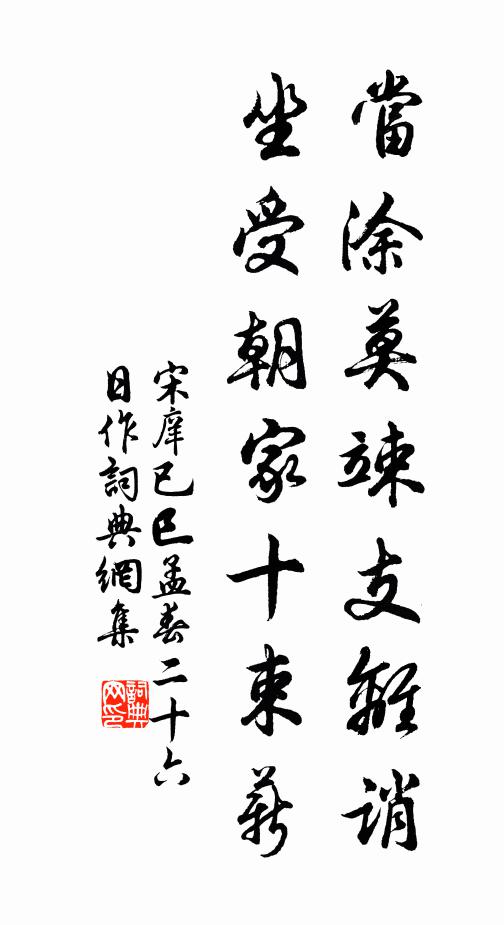 當涂莫竦支離誚
坐受朝家十束薪
宋庠己巳孟春二十六
日作詞典網集
詞典網印